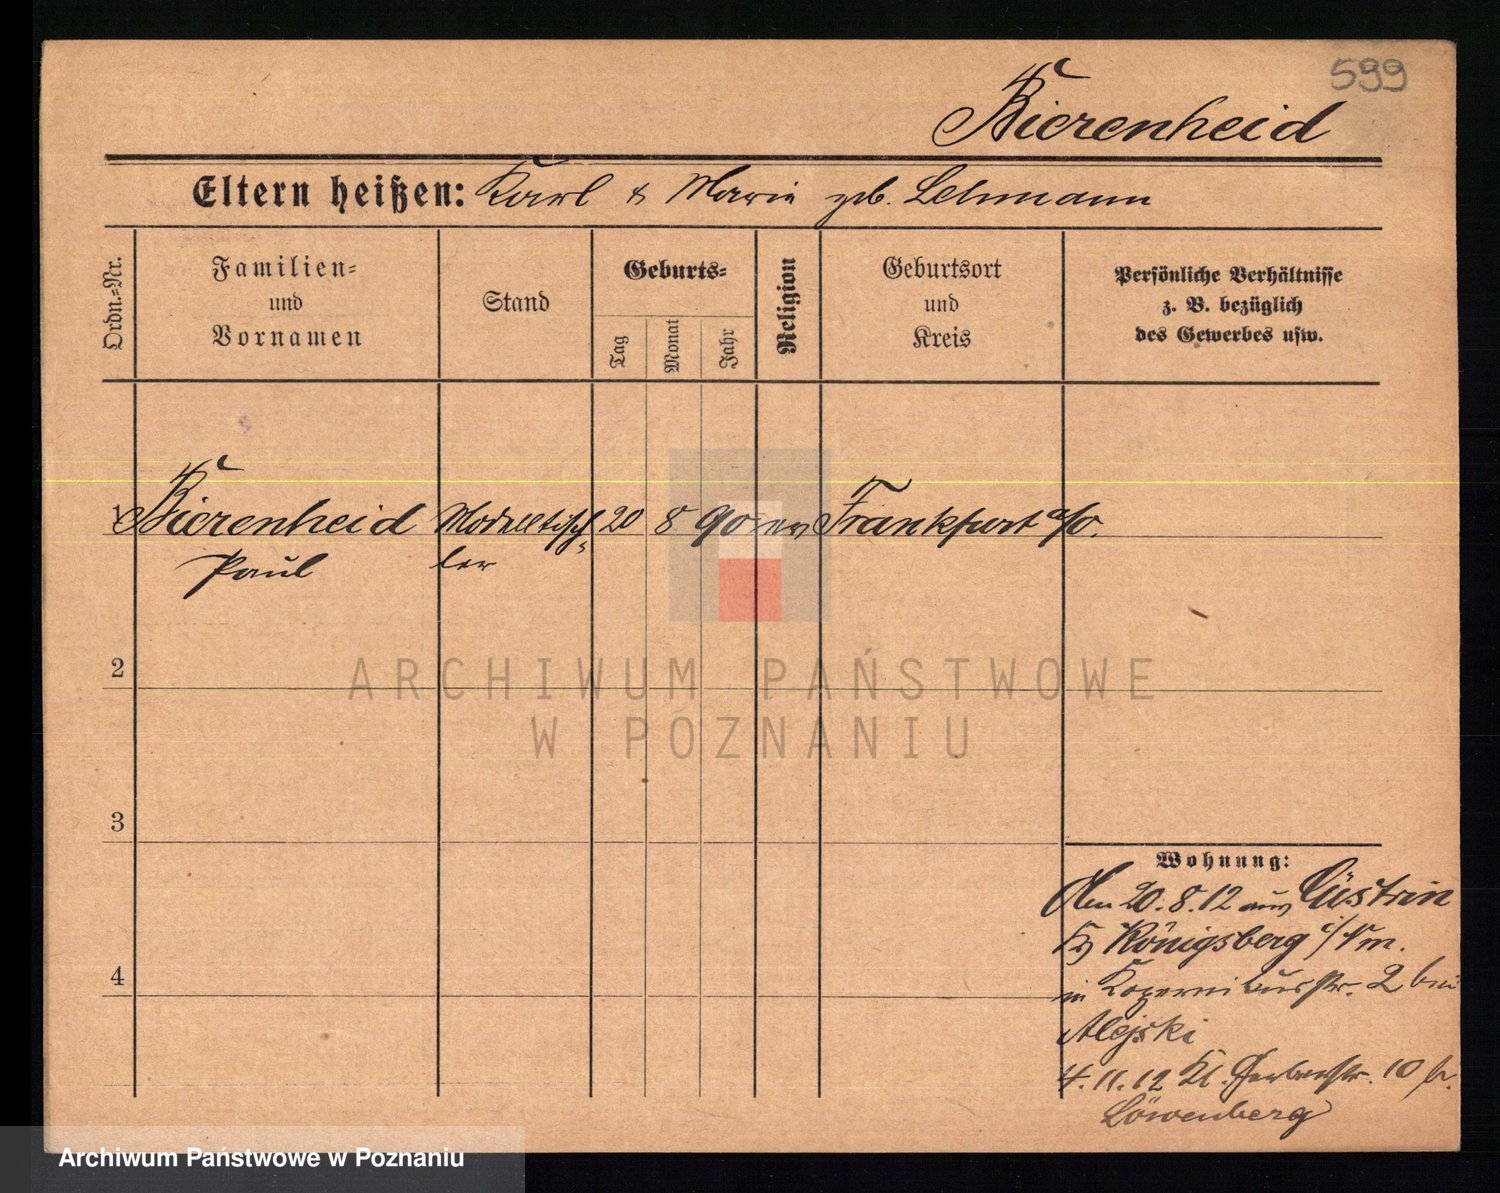 599
Bierenheid
Eltern heißen: Karl & Marie geb. Lehmann
Ordn.=Nr.
Familien=
und
Vornamen
Stand
Geburts=
Tag
Monat
Jahr
Religion
Geburtsort
und
Kreis
Persönliche Verhältnisse
z. B. bezüglich
des Gewerbes usw.
1 Bierenheid Modelltisch= 20 8 90 ev Frankfurt a/O.
Paul ler
2
ARCHIWUM PAŃSTWOWE
W POZNANIU
3
Wohnung:
Am 20.8.12 aus Cüstrin
Königsberg i/Nm.
4
in Kopernikusstr. 2 bei
Alejski
4.11.12 Kl. Gerberstr. 10 b.
Löwenberg
Archiwum Państwowe w Poznaniu